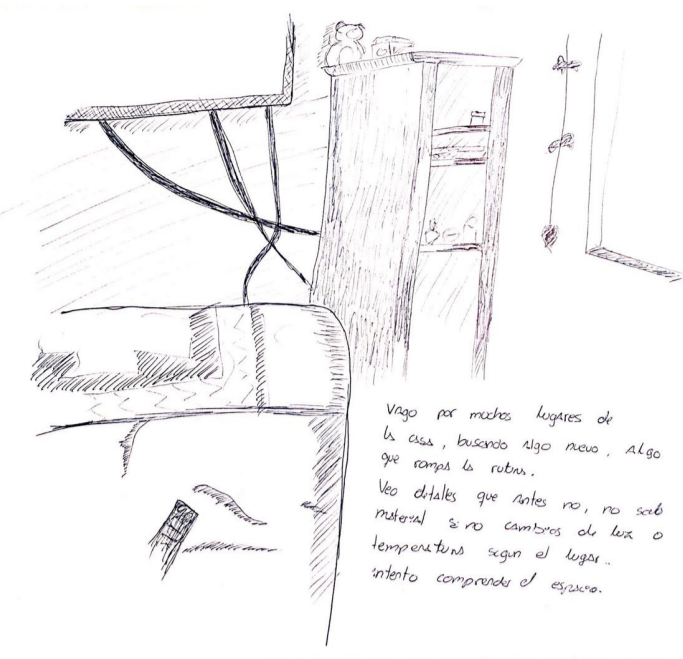 Vago por muchos lugares de
la casa, buscando algo nuevo, Algo
que rompa la rutina.
Veo detalles que antes no, no solo
material si no cambios de luz o
temperatura segun el lugar..
intento comprender el espacio.